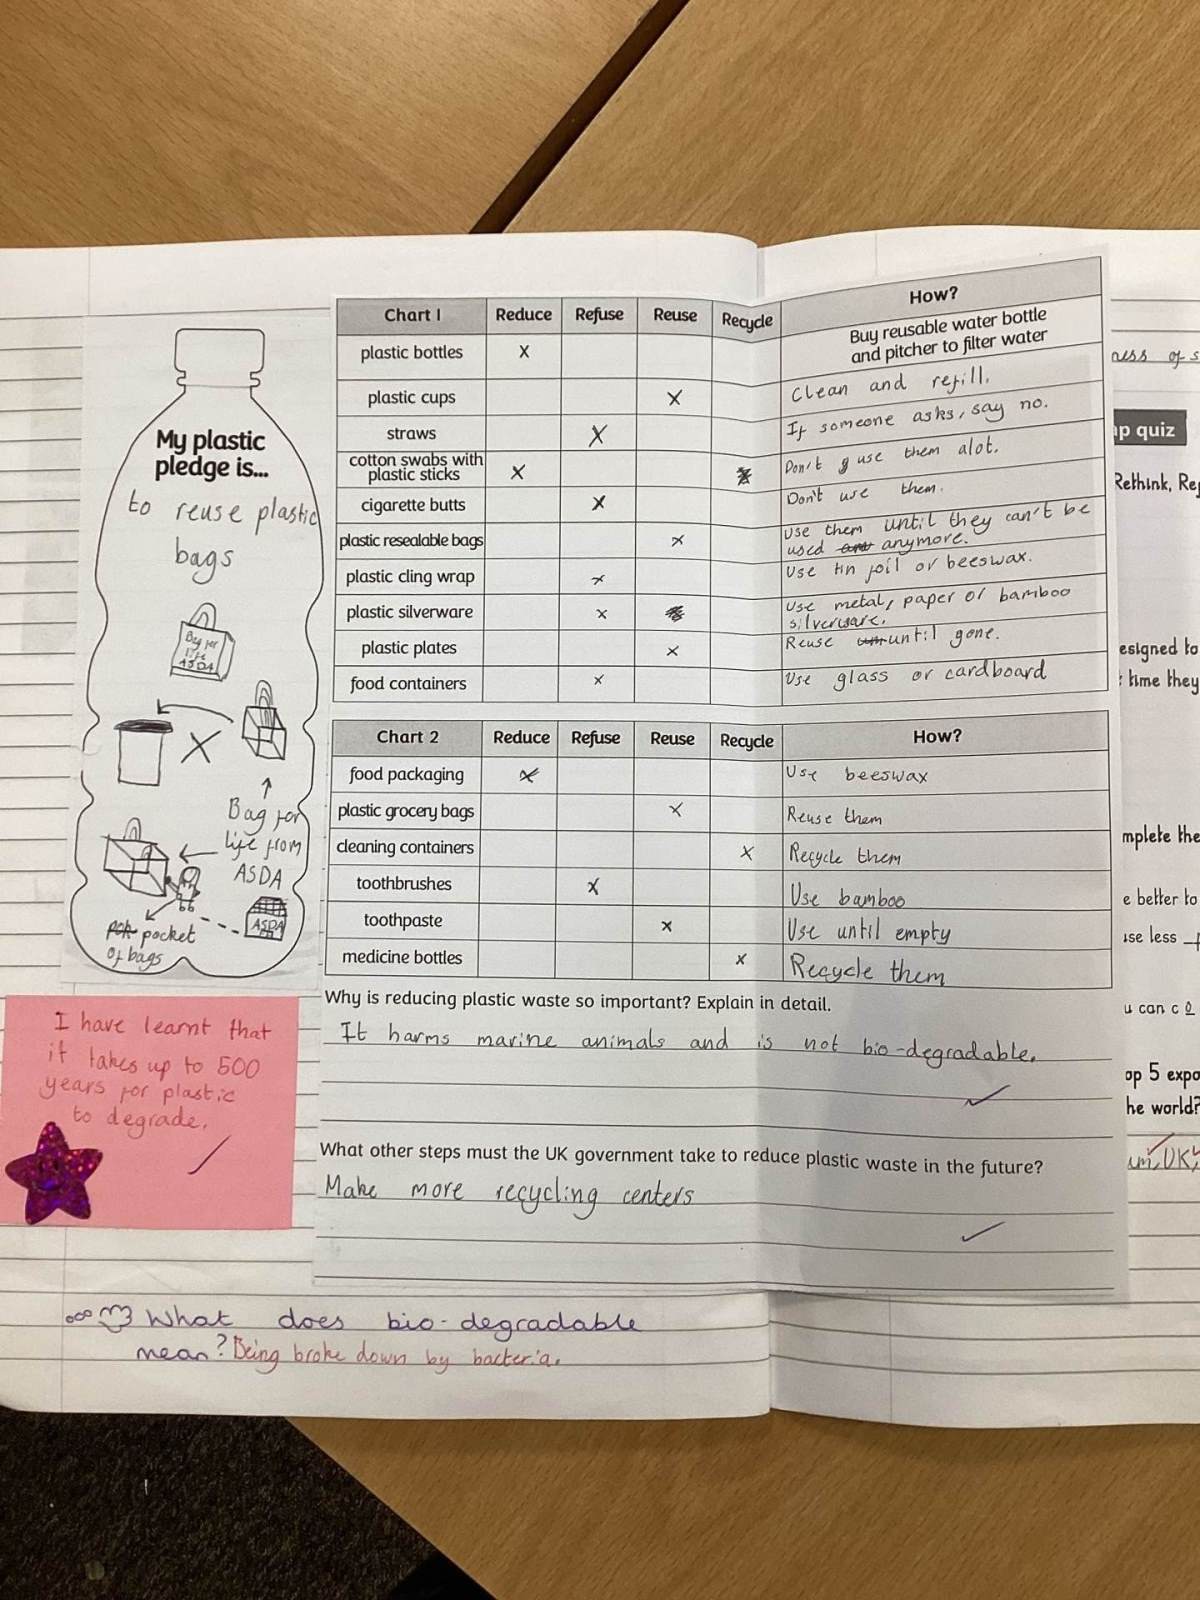 My plastic
pledge is...
to reuse plastic
bags
Bag for
life
ASDA
Bag for
life from
ASDA
ASDA
pocket
of bags
I have learnt that
it takes up to 500
years for plastic
to degrade.
Chart 1 Reduce Refuse Reuse Recycle How?
plastic bottles x Buy reusable water bottle
and pitcher to filter water
plastic cups x Clean and refill.
straws x If someone asks, say no.
cotton swabs with
plastic sticks x Don't use them alot.
cigarette butts x Don't use them.
plastic resealable bags x Use them until they can't be
used anymore.
plastic cling wrap x Use tin foil or beeswax.
plastic silverware x Use metal, paper or bamboo
silverware.
plastic plates x Reuse until gone.
food containers x Use glass or cardboard
Chart 2 Reduce Refuse Reuse Recycle How?
food packaging x Use beeswax
plastic grocery bags x Reuse them
cleaning containers x Recycle them
toothbrushes x Use bamboo
toothpaste x Use until empty
medicine bottles x Recycle them
Why is reducing plastic waste so important? Explain in detail.
It harms marine animals and is not bio-degradable.
What other steps must the UK government take to reduce plastic waste in the future?
Make more recycling centers
What does bio-degradable
mean? Being broke down by bacteria.
ness of s
ap quiz
Rethink, Rep
esigned to
time they
mplete the
e better to
use less
u can c o
op 5 expo
he world?
um, UK,